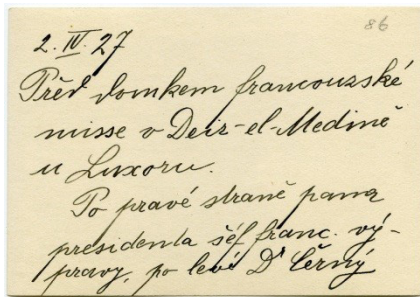 86
2. IV. 27
Před domkem francouzské
misse v Deir-el-Medině
u Luxoru.
Po pravé straně pana
presidenta šéf franc. vý-
pravy, po levé Dr Černý